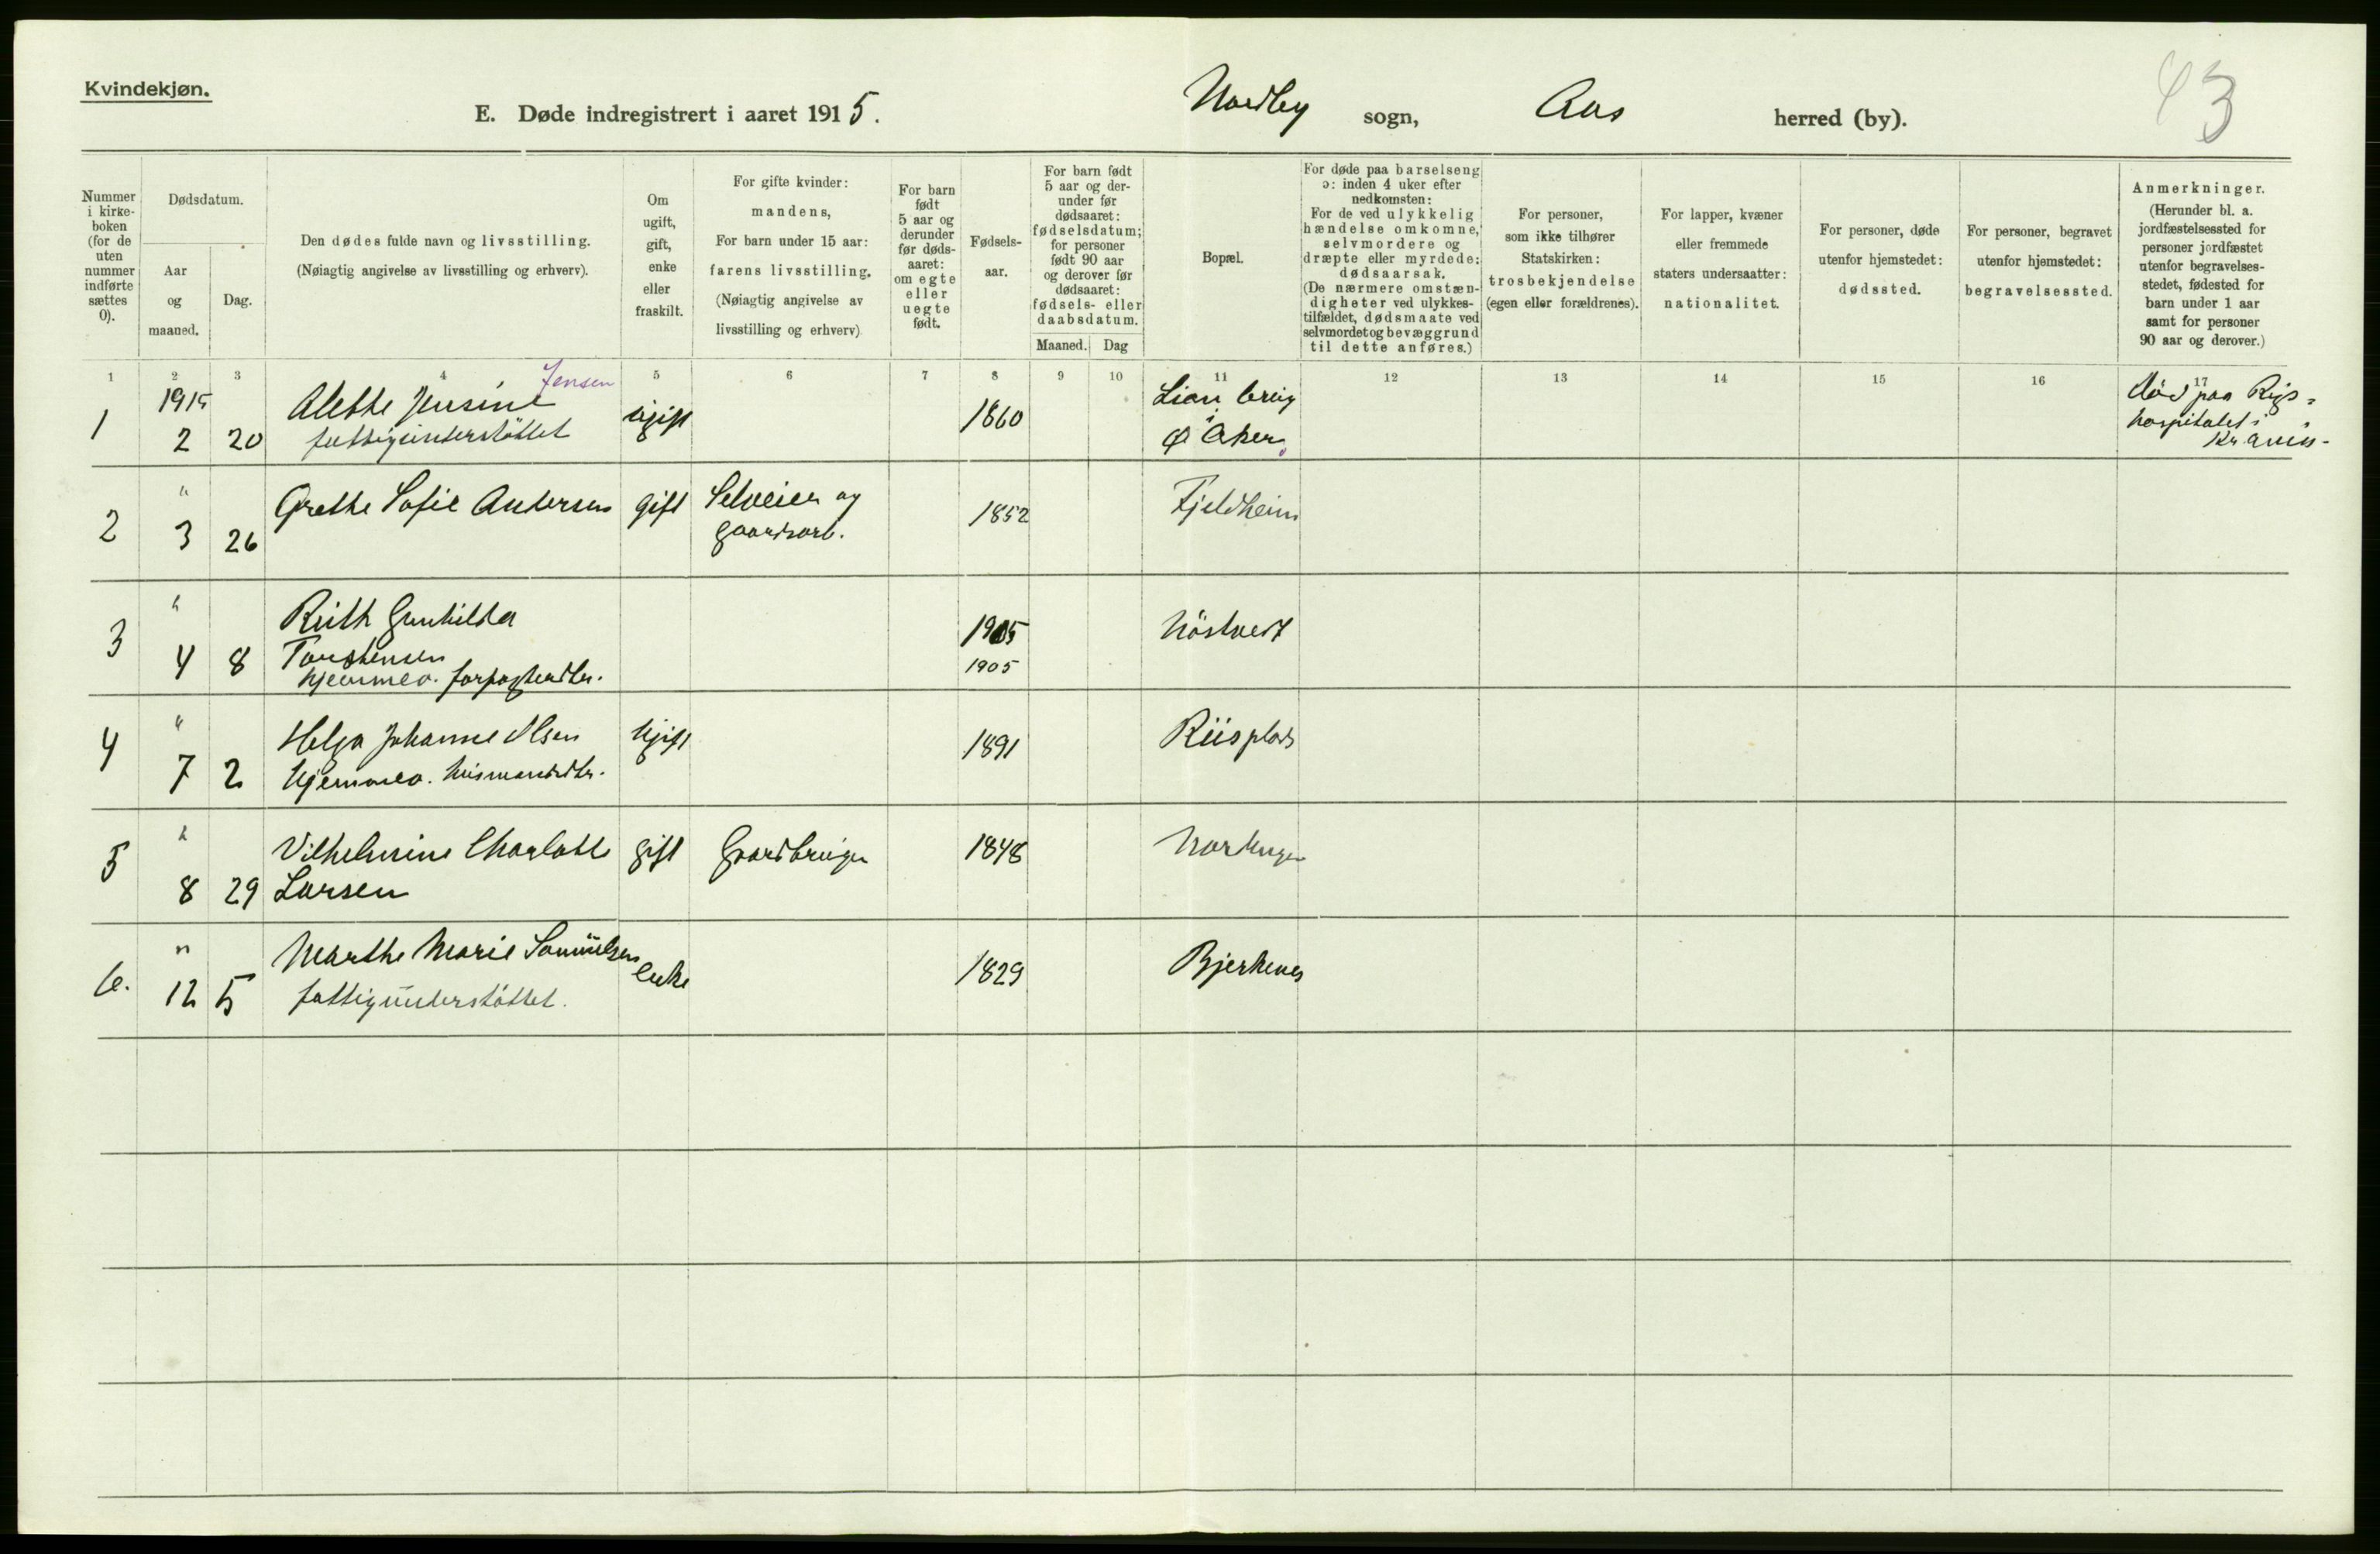 Kvindekjøn.
E. Døde indregistrert i aaret 1915. Nordby sogn, Aas herred (by).
43
Nummer i kirke-boken (for de uten nummer indførte sættes 0).
Dødsdatum.
Aar og maaned.
Dag.
Den dødes fulde navn og livsstilling.
(Nøiagtig angivelse av livsstilling og erhverv).
Om ugift, gift, enke eller fraskilt.
For gifte kvinder: mandens,
For barn under 15 aar: farens livsstilling.
(Nøiagtig angivelse av livsstilling og erhverv)
For barn født 5 aar og derunder før døds-aaret: om egte eller uegte født.
Fødsels-aar.
For barn født 5 aar og der-under før dødsaaret: fødselsdatum; for personer født 90 aar og derover før dødsaaret: fødsels- eller daabsdatum.
Maaned. Dag
Bopæl.
For døde paa barselseng ɔ: inden 4 uker efter nedkomsten:
For de ved ulykkelig hændelse omkomne, selvmordere og dræpte eller myrdede: dødsaarsak.
(De nærmere omstæn-digheter ved ulykkes-tilfældet, dødsmaate ved selvmordet og bevæggrund til dette anføres.)
For personer, som ikke tilhører Statskirken: trosbekjendelse (egen eller forældrenes).
For lapper, kvæner eller fremmede staters undersaatter: nationalitet.
For personer, døde utenfor hjemstedet: dødssted.
For personer, begravet utenfor hjemstedet: begravelsessted.
Anmerkninger.
(Herunder bl. a. jordfæstelsessted for personer jordfæstet utenfor begravelses-stedet, fødested for barn under 1 aar samt for personer 90 aar og derover.)
1 2 3 4 5 6 7 8 9 10 11 12 13 14 15 16 17
1 1915 2 20 Alethe Jensine Jensen ugift 1860 Lian brug død paa Rigs=
fattigunderstöttet i Ø Aker hospitalet i
2 " 3 26 Grethe Sofie Andersen gift Selveier og gaardsarb. 1852 Fjeldheim
3 " 4 8 Ruth Gunhilda 1905
Torstensen 1905
hjemmev. forpagterdtr.
4 " 7 2 Helga Johanne Olsen Ugift 1891 Riisplads
Hjemmev. husmandsdtr.
5 " 8 29 Vilhelmine Charlotte gift Gaardbruger 1848
Larsen
6. " 12 5 Marthe Marie Samuelsen enke 1829 Bjerkenes
fattigunderstöttet.